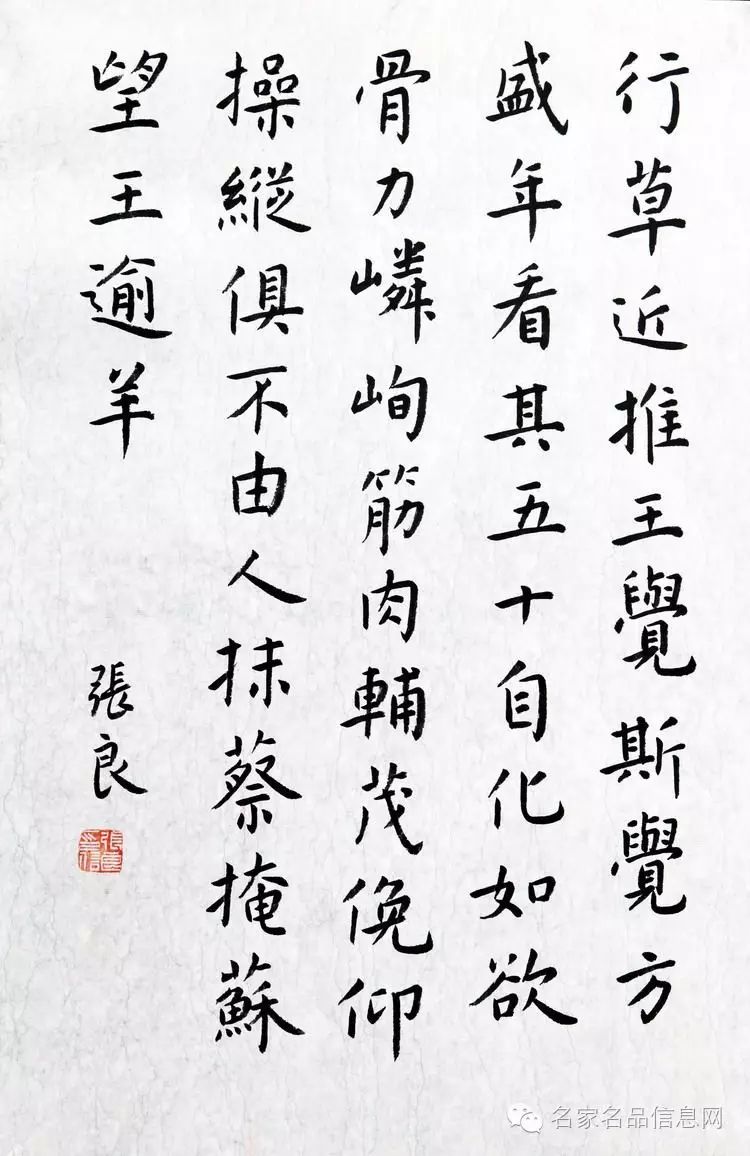 行草近推王覺斯覺方
盛年看其五十自化如欲
骨力嶙峋筋肉輔茂俛仰
操縱俱不由人抹蔡掩蘇
望王逾羊
張良
名家名品信息网